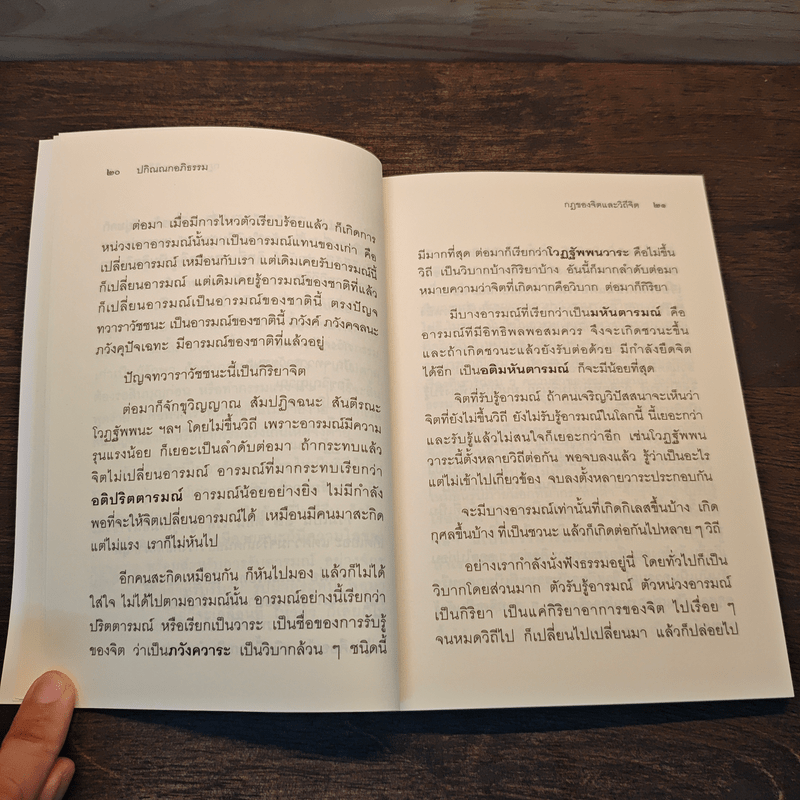 ๒๐ ปกิณณกอภิธรรม
ต่อมา เมื่อมีการไหวตัวเรียบร้อยแล้ว ก็เกิดการ
หน่วงเอาอารมณ์นั้นมาเป็นอารมณ์แทนของเก่า คือ
เปลี่ยนอารมณ์ เหมือนกับเรา แต่เดิมเคยรับอารมณ์นี้
ก็เปลี่ยนอารมณ์ แต่เดิมเคยรู้อารมณ์ของชาติที่แล้ว
ก็เปลี่ยนอารมณ์เป็นอารมณ์ของชาตินี้ ตรงปัญจ
ทวาราวัชชนะ เป็นอารมณ์ของชาตินี้ ภวังค์ ภวังคจลนะ
ภวังคุปัจเฉทะ มีอารมณ์ของชาติที่แล้วอยู่
ปัญจทวาราวัชชนะนี้เป็นกิริยาจิต
ต่อมาก็จักขุวิญญาณ สัมปฏิจฉนะ สันตีรณะ
โวฏฐัพพนะ ฯลฯ โดยไม่ขึ้นวิถี เพราะอารมณ์มีความ
รุนแรงน้อย ก็เยอะเป็นลำดับต่อมา ถ้ากระทบแล้ว
จิตไม่เปลี่ยนอารมณ์ อารมณ์ที่มากระทบเรียกว่า
อติปริตตารมณ์ อารมณ์น้อยอย่างยิ่ง ไม่มีกำลัง
พอที่จะให้จิตเปลี่ยนอารมณ์ได้ เหมือนมีคนมาสะกิด
แต่ไม่แรง เราก็ไม่หันไป
อีกคนสะกิดเหมือนกัน ก็หันไปมอง แล้วก็ไม่ได้
ใส่ใจ ไม่ได้ไปตามอารมณ์นั้น อารมณ์อย่างนี้เรียกว่า
ปริตตารมณ์ หรือเรียกเป็นวาระ เป็นชื่อของการรับรู้
ของจิต ว่าเป็นภวังควาระ เป็นวิบากล้วน ๆ ชนิดนี้
กฎของจิตและวิถีจิต ๒๑
มีมากที่สุด ต่อมาก็เรียกว่าโวฏฐัพพนวาระ คือไม่ขึ้น
วิถี เป็นวิบากบ้างกิริยาบ้าง อันนี้ก็มากลำดับต่อมา
หมายความว่าจิตที่เกิดมากคือวิบาก ต่อมาก็กิริยา
มีบางอารมณ์ที่เรียกว่าเป็นมหันตารมณ์ คือ
อารมณ์ที่มีอิทธิพลพอสมควร จึงจะเกิดชวนะขึ้น
และถ้าเกิดชวนะแล้วยังรับต่อด้วย มีกำลังยืดจิต
ได้อีก เป็นอติมหันตารมณ์ ก็จะมีน้อยที่สุด
จิตที่รับรู้อารมณ์ ถ้าคนเจริญวิปัสสนาจะเห็นว่า
จิตที่ยังไม่ขึ้นวิถี ยังไม่รับรู้อารมณ์ในโลกนี้ นี้เยอะกว่า
และรับรู้แล้วไม่สนใจก็เยอะกว่าอีก เช่นโวฏฐัพพน
วาระนี้ตั้งหลายวิถีต่อกัน พอจบลงแล้ว รู้ว่าเป็นอะไร
แต่ไม่เข้าไปเกี่ยวข้อง จบลงตั้งหลายวาระประกอบกัน
จะมีบางอารมณ์เท่านั้นที่เกิดกิเลสขึ้นบ้าง เกิด
กุศลขึ้นบ้าง ที่เป็นชวนะ แล้วก็เกิดต่อกันไปหลาย ๆ วิถี
อย่างเรากำลังนั่งฟังธรรมอยู่นี่ โดยทั่วไปก็เป็น
วิบากโดยส่วนมาก ตัวรับรู้อารมณ์ ตัวหน่วงอารมณ์
เป็นกิริยา เป็นแค่กิริยาอาการของจิต ไปเรื่อย ๆ
จนหมดวิถีไป ก็เปลี่ยนไปเปลี่ยนมา แล้วก็ปล่อยไป